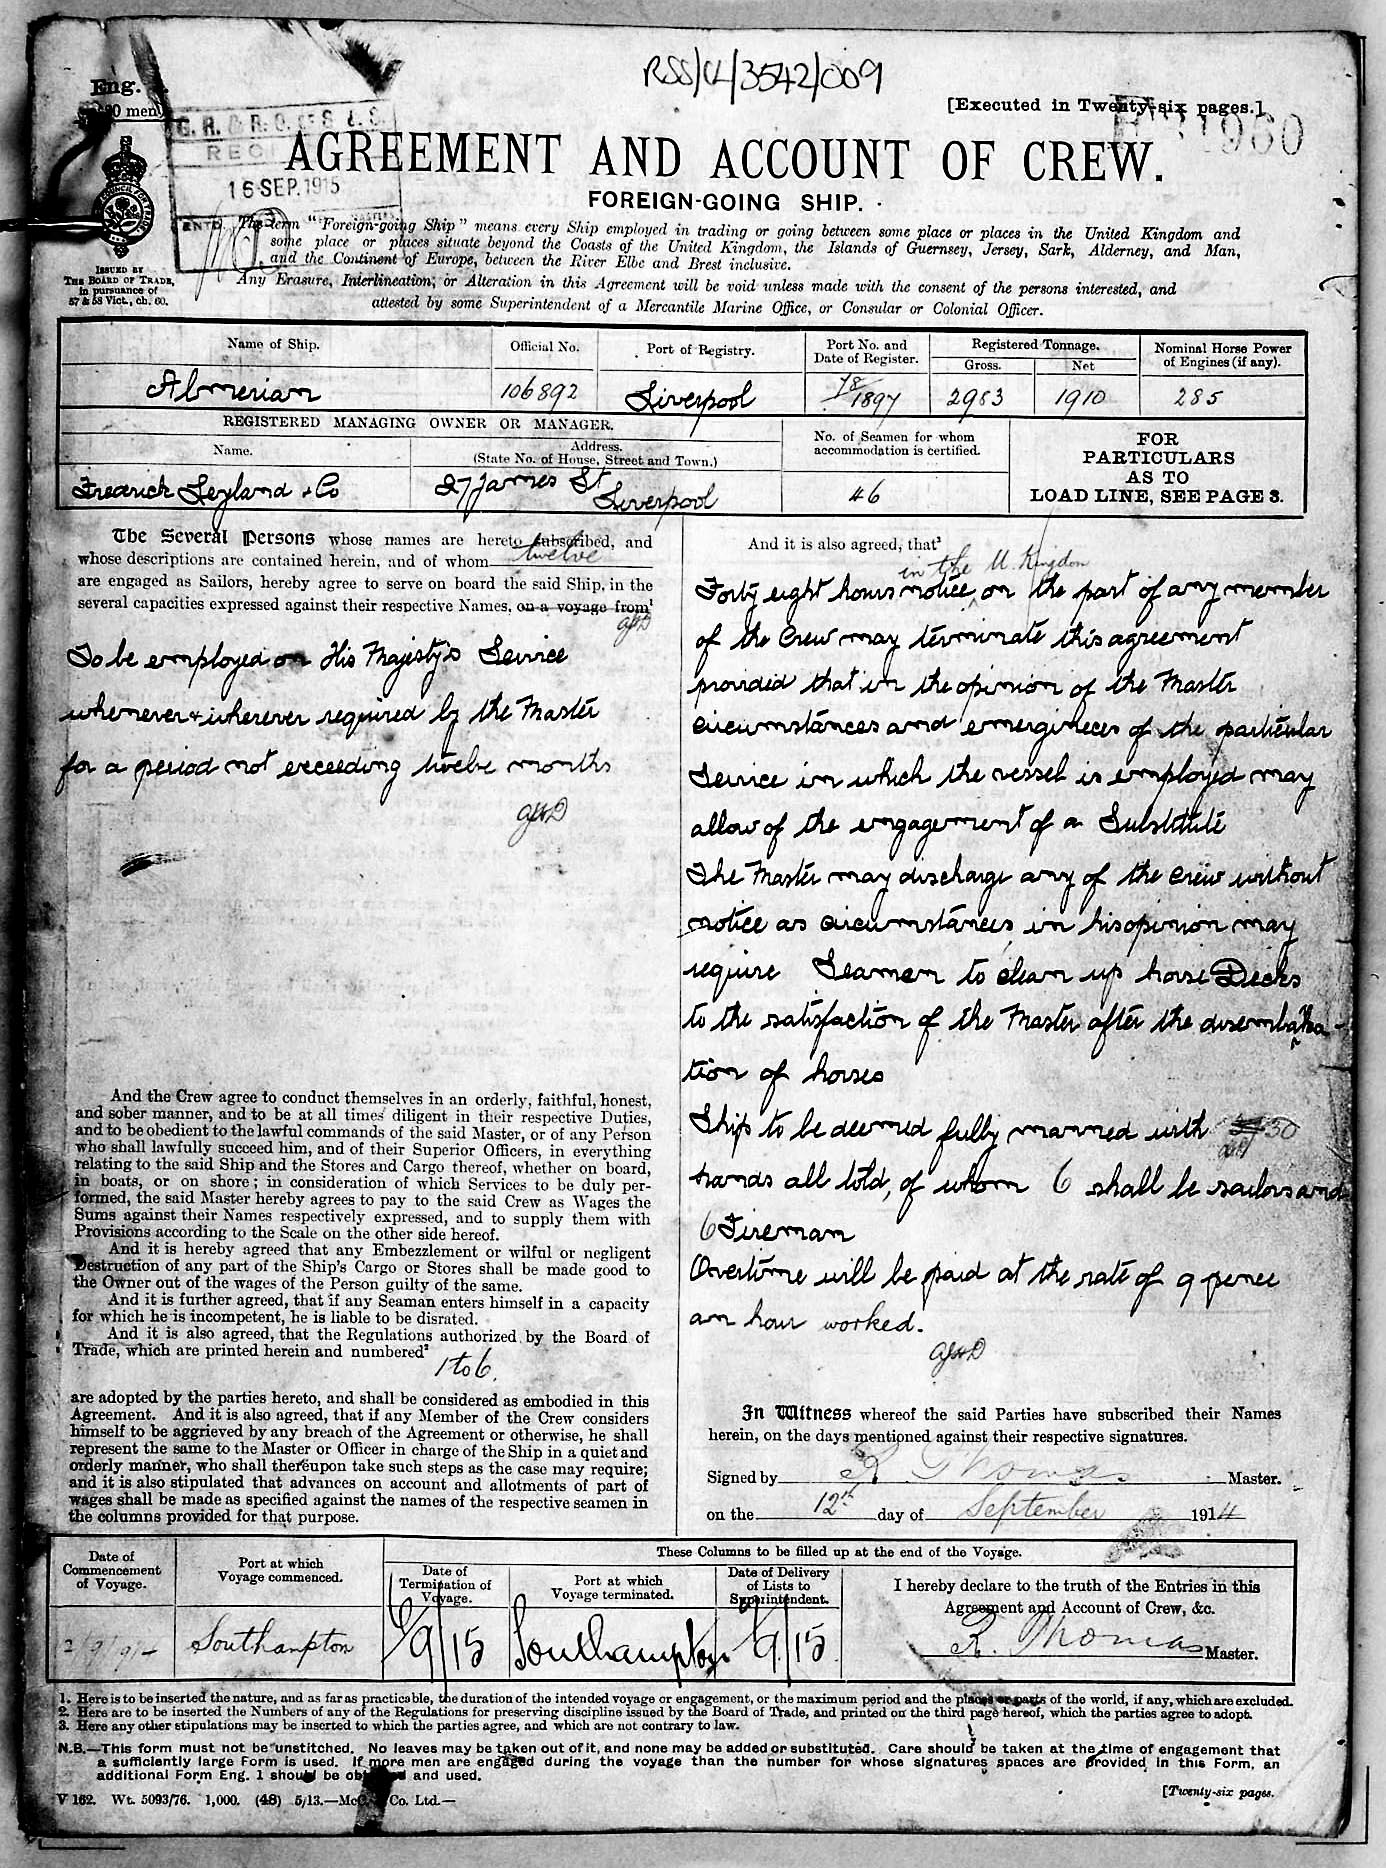 RSS/CL/3542/009
Eng. 1.
[Executed in Twenty-six pages.]
1960
16 SEP. 1915
AGREEMENT AND ACCOUNT OF CREW.
FOREIGN-GOING SHIP.
The term "Foreign-going Ship" means every Ship employed in trading or going between some place or places in the United Kingdom and
some place or places situate beyond the Coasts of the United Kingdom, the Islands of Guernsey, Jersey, Sark, Alderney, and Man,
and the Continent of Europe, between the River Elbe and Brest inclusive.
Any Erasure, Interlineation, or Alteration in this Agreement will be void unless made with the consent of the persons interested, and
attested by some Superintendent of a Mercantile Marine Office, or Consular or Colonial Officer.
ISSUED BY
THE BOARD OF TRADE,
in pursuance of
57 & 58 Vict., ch. 60.
Name of Ship. Official No. Port of Registry. Port No. and Date of Register. Registered Tonnage. Gross. Net Nominal Horse Power of Engines (if any).
Almerian 106892 Liverpool 78/1897 2983 1910 285
REGISTERED MANAGING OWNER OR MANAGER.
Name. Address. (State No. of House, Street and Town.) No. of Seamen for whom accommodation is certified.
Fredrick Leyland & Co 27 James St Liverpool 46
FOR
PARTICULARS
AS TO
LOAD LINE, SEE PAGE 3.
The Several Persons whose names are hereto subscribed, and
whose descriptions are contained herein, and of whom twelve
are engaged as Sailors, hereby agree to serve on board the said Ship, in the
several capacities expressed against their respective Names, on a voyage from¹
To be employed on His Majesty's Service
whenever & wherever required by the Master
for a period not exceeding twelve months
And the Crew agree to conduct themselves in an orderly, faithful, honest,
and sober manner, and to be at all times diligent in their respective Duties,
and to be obedient to the lawful commands of the said Master, or of any Person
who shall lawfully succeed him, and of their Superior Officers, in everything
relating to the said Ship and the Stores and Cargo thereof, whether on board,
in boats, or on shore; in consideration of which Services to be duly per-
formed, the said Master hereby agrees to pay to the said Crew as Wages the
Sums against their Names respectively expressed, and to supply them with
Provisions according to the Scale on the other side hereof.
And it is hereby agreed that any Embezzlement or wilful or negligent
Destruction of any part of the Ship's Cargo or Stores shall be made good to
the Owner out of the wages of the Person guilty of the same.
And it is further agreed, that if any Seaman enters himself in a capacity
for which he is incompetent, he is liable to be disrated.
And it is also agreed, that the Regulations authorized by the Board of
Trade, which are printed herein and numbered²
1 to 6.
are adopted by the parties hereto, and shall be considered as embodied in this
Agreement. And it is also agreed, that if any Member of the Crew considers
himself to be aggrieved by any breach of the Agreement or otherwise, he shall
represent the same to the Master or Officer in charge of the Ship in a quiet and
orderly manner, who shall thereupon take such steps as the case may require;
and it is also stipulated that advances on account and allotments of part of
wages shall be made as specified against the names of the respective seamen in
the columns provided for that purpose.
And it is also agreed, that³
in the U. Kingdom
Forty eight hours notice on the part of any member
of the Crew may terminate this agreement
provided that in the opinion of the Master
circumstances and emergineces of the particular
Service in which the vessel is employed may
allow of the engagement of a Substitute
The Master may discharge any of the crew without
notice as circumstances in his opinion may
require Seamen to clean up horse Decks
to the satisfaction of the Master after the disembarka-
tion of horses
Ship to be deemed fully manned with 30
hands all told, of whom 6 shall be sailors and
6 Fireman
Overtime will be paid at the rate of 9 pence
an hour worked.
In Witness whereof the said Parties have subscribed their Names
herein, on the days mentioned against their respective signatures.
Signed by R. Thomas Master.
on the 12th day of September 1914
Date of Commencement of Voyage. Port at which Voyage commenced. These Columns to be filled up at the end of the Voyage.
Date of Termination of Voyage. Port at which Voyage terminated. Date of Delivery of Lists to Superintendent.
Southampton 6/9/15 Southampton 9/9/15
I hereby declare to the truth of the Entries in this
Agreement and Account of Crew, &c.
R. Thomas Master.
1. Here is to be inserted the nature, and as far as practicable, the duration of the intended voyage or engagement, or the maximum period and the places or parts of the world, if any, which are excluded.
2. Here are to be inserted the Numbers of any of the Regulations for preserving discipline issued by the Board of Trade, and printed on the third page hereof, which the parties agree to adopt.
3. Here any other stipulations may be inserted to which the parties agree, and which are not contrary to law.
N.B.—This form must not be unstitched. No leaves may be taken out of it, and none may be added or substituted. Care should be taken at the time of engagement that
a sufficiently large Form is used. If more men are engaged during the voyage than the number for whose signatures spaces are provided in this Form, an
additional Form Eng. 1 should be obtained and used.
V 162. Wt. 5093/76. 1,000. (48) 5/13.—McC. & Co. Ltd.—
[Twenty-six pages.